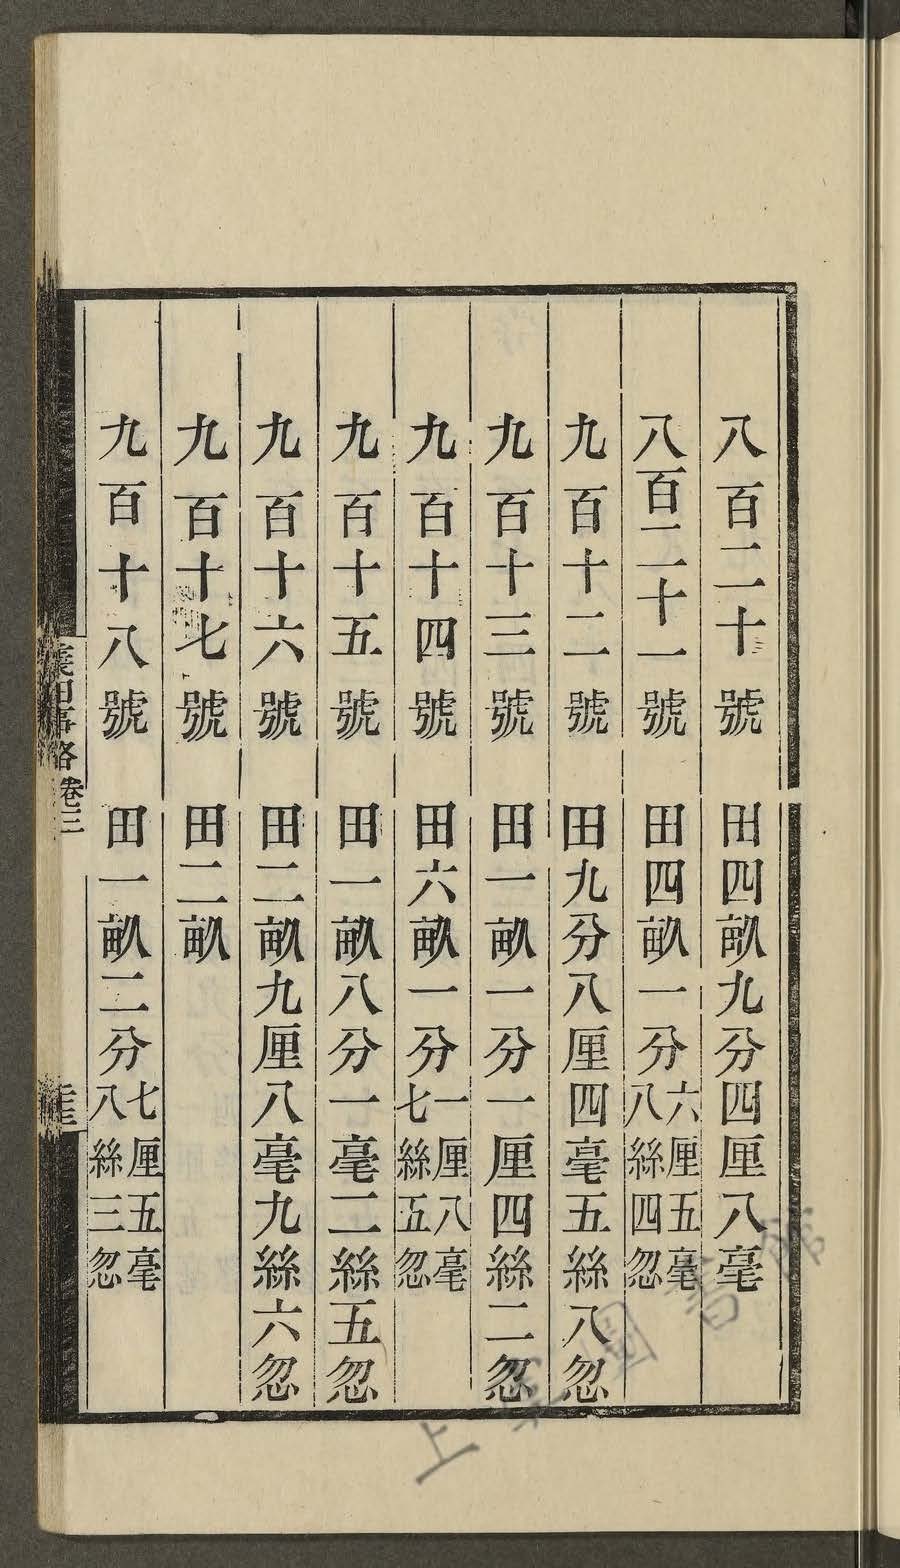 八百二十號　田四畝九分四厘八毫
八百二十一號　田四畝一分六厘五毫八絲四忽
九百十二號　田九分八厘四毫五絲八忽
九百十三號　田一畝一分一厘四絲二忽
九百十四號　田六畝一分一厘八毫七絲五忽
九百十五號　田一畝八分一毫二絲五忽
九百十六號　田二畝九厘八毫九絲六忽
九百十七號　田二畝
九百十八號　田一畝二分七厘五毫八絲三忽
事略卷三
上 圖書館